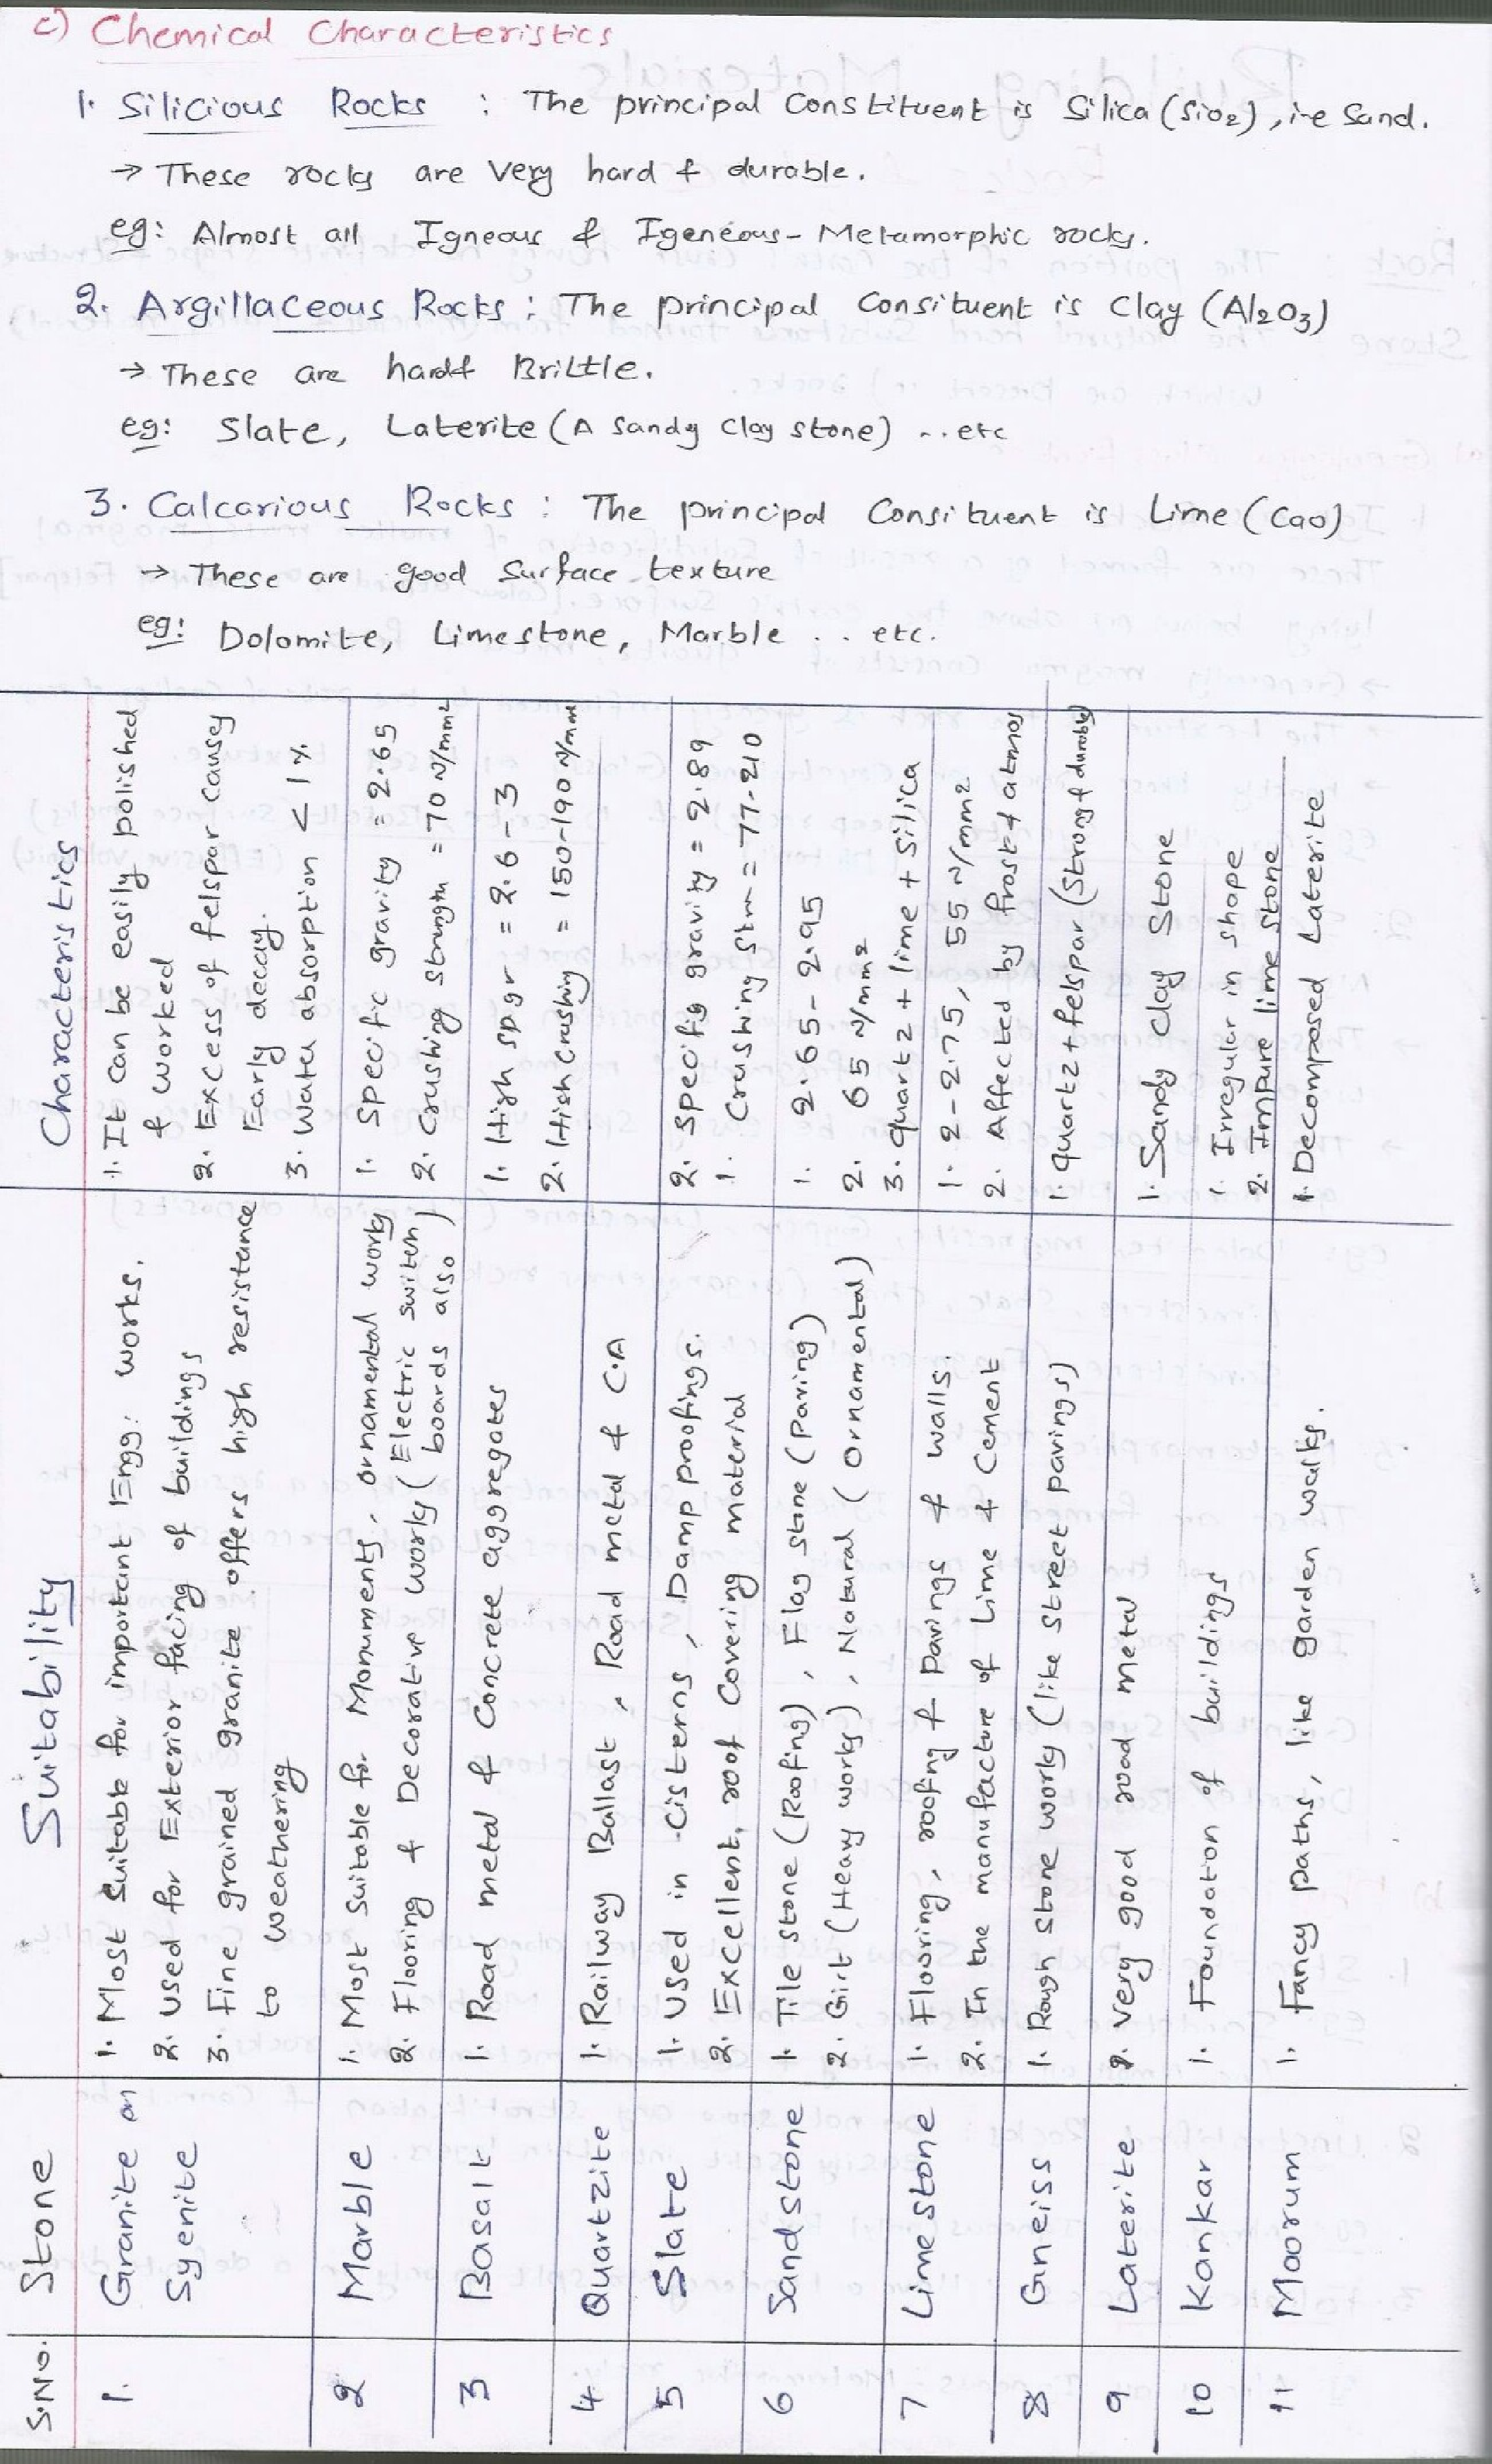 c) Chemical Characteristics
1. Silicious Rocks : The principal Constituent is Silica (SiO2), i.e Sand.
→ These rocks are very hard & durable.
eg: Almost all Igneous & Igeneous - Metamorphic rocks.
2. Argillaceous Rocks : The principal Consituent is Clay (Al2O3)
→ These are hard & Brittle.
eg: Slate, Laterite (A Sandy Clay stone) ...etc
3. Calcarious Rocks : The principal Consituent is Lime (CaO)
→ These are good Surface texture
eg: Dolomite, Limestone, Marble ... etc.
S.NO. Stone Suitability Characteristics
1. Granite or Syenite
1. Most Suitable for important Engg. works.
2. Used for Exterior facing of buildings
3. Fine grained granite offers high resistance
to weathering
1. It can be easily polished
& worked
2. Excess of felspar causes
Early decay.
3. Water absorption < 1%
2 Marble
1. Most Suitable for Monuments, ornamental works
2. Flooring & Decorative works (Electric switch
boards also)
1. Specific gravity = 2.65
2. Crushing strength = 70 N/mm2
3 Basalt
1. Road metal & Concrete aggregates
1. High sp.gr = 2.6 - 3
2. High crushing = 150-190 N/mm2
4. Quartzite
1. Railway Ballast, Road metal & C.A
5 Slate
1. Used in Cisterns, Damp proofings.
2. Excellent, roof Covering material
2. Specific gravity = 2.89
1. Crushing Stm = 77-210
6 Sandstone
1. Tile stone (Roofing), Flag stone (Paving)
2. Girt (Heavy works), Natural (Ornamental)
1. 2.65 - 2.95
2. 65 N/mm2
3. quartz + lime + silica
7 Limestone
1. Flooring, roofing & pavings & walls.
2. In the manufacture of Lime & Cement
1. 2 - 2.75, 55 N/mm2
2. Affected by frost & atmos
8 Gneiss
1. Rough stone works (like street pavings)
1. quartz + felspar (Strong & durable)
9 Laterite
2. Very good road metal
1. Sandy Clay Stone
10 Kankar
1. Foundation of buildings
1. Irregular in shape
2. Impure lime stone
11 Moorum
1. Fancy paths, like garden walks.
1. Decomposed Laterite